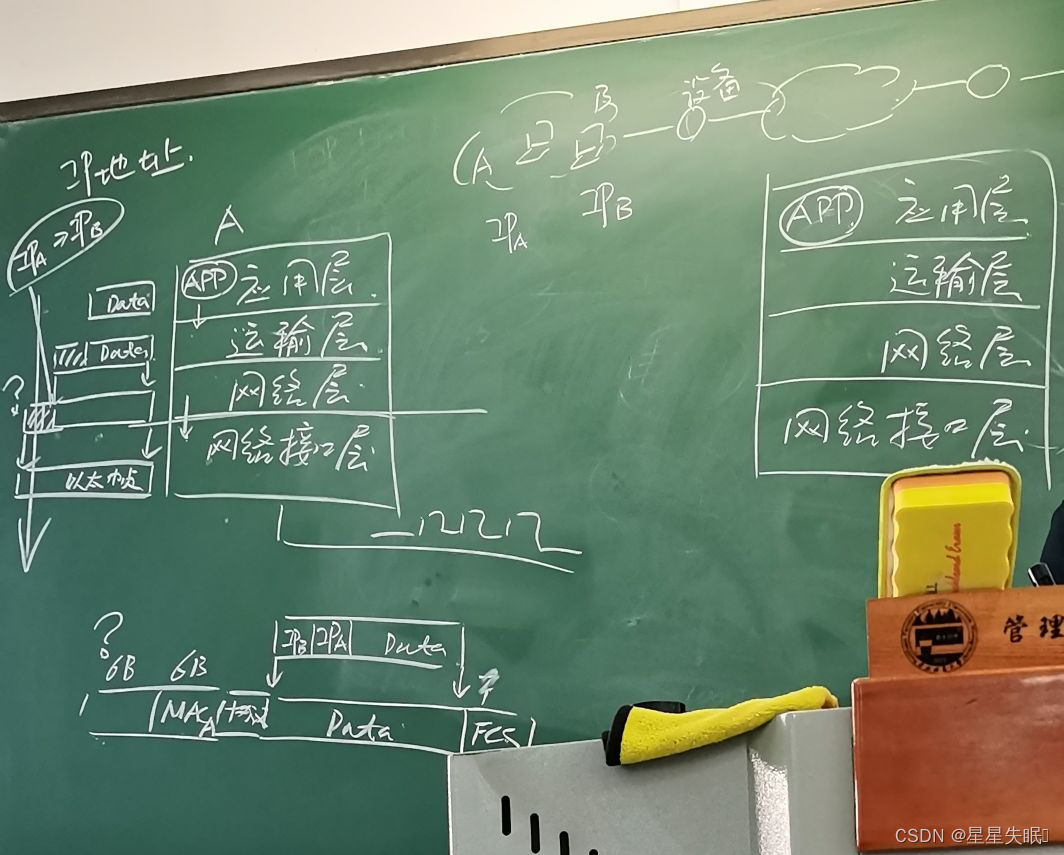 IP地址.
IPA→IPB
A
设备
(A
B
IPA
IPB
APP 应用层
运输层
网络层
网络接口层
Data
Data
?
以太帧
APP 应用层
运输层
网络层
网络接口层
?
6B 6B
IPB IPA Data
MACA
Data
FCS
管理
CSDN @星星失眠